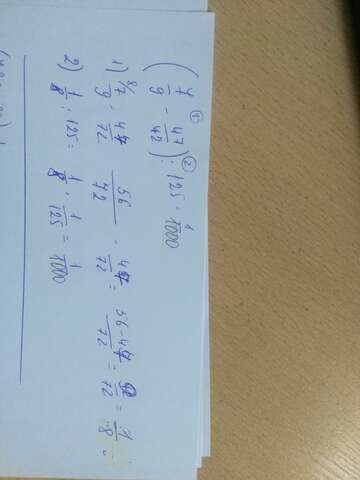 ( 7/9 - 47/72 ) : 125 = 1/1000
1) 7/9 - 47/72 = 56/72 - 47/72 = 56-47/72 = 9/72 = 1/8
2) 1/8 : 125 = 1/8 · 1/125 = 1/1000